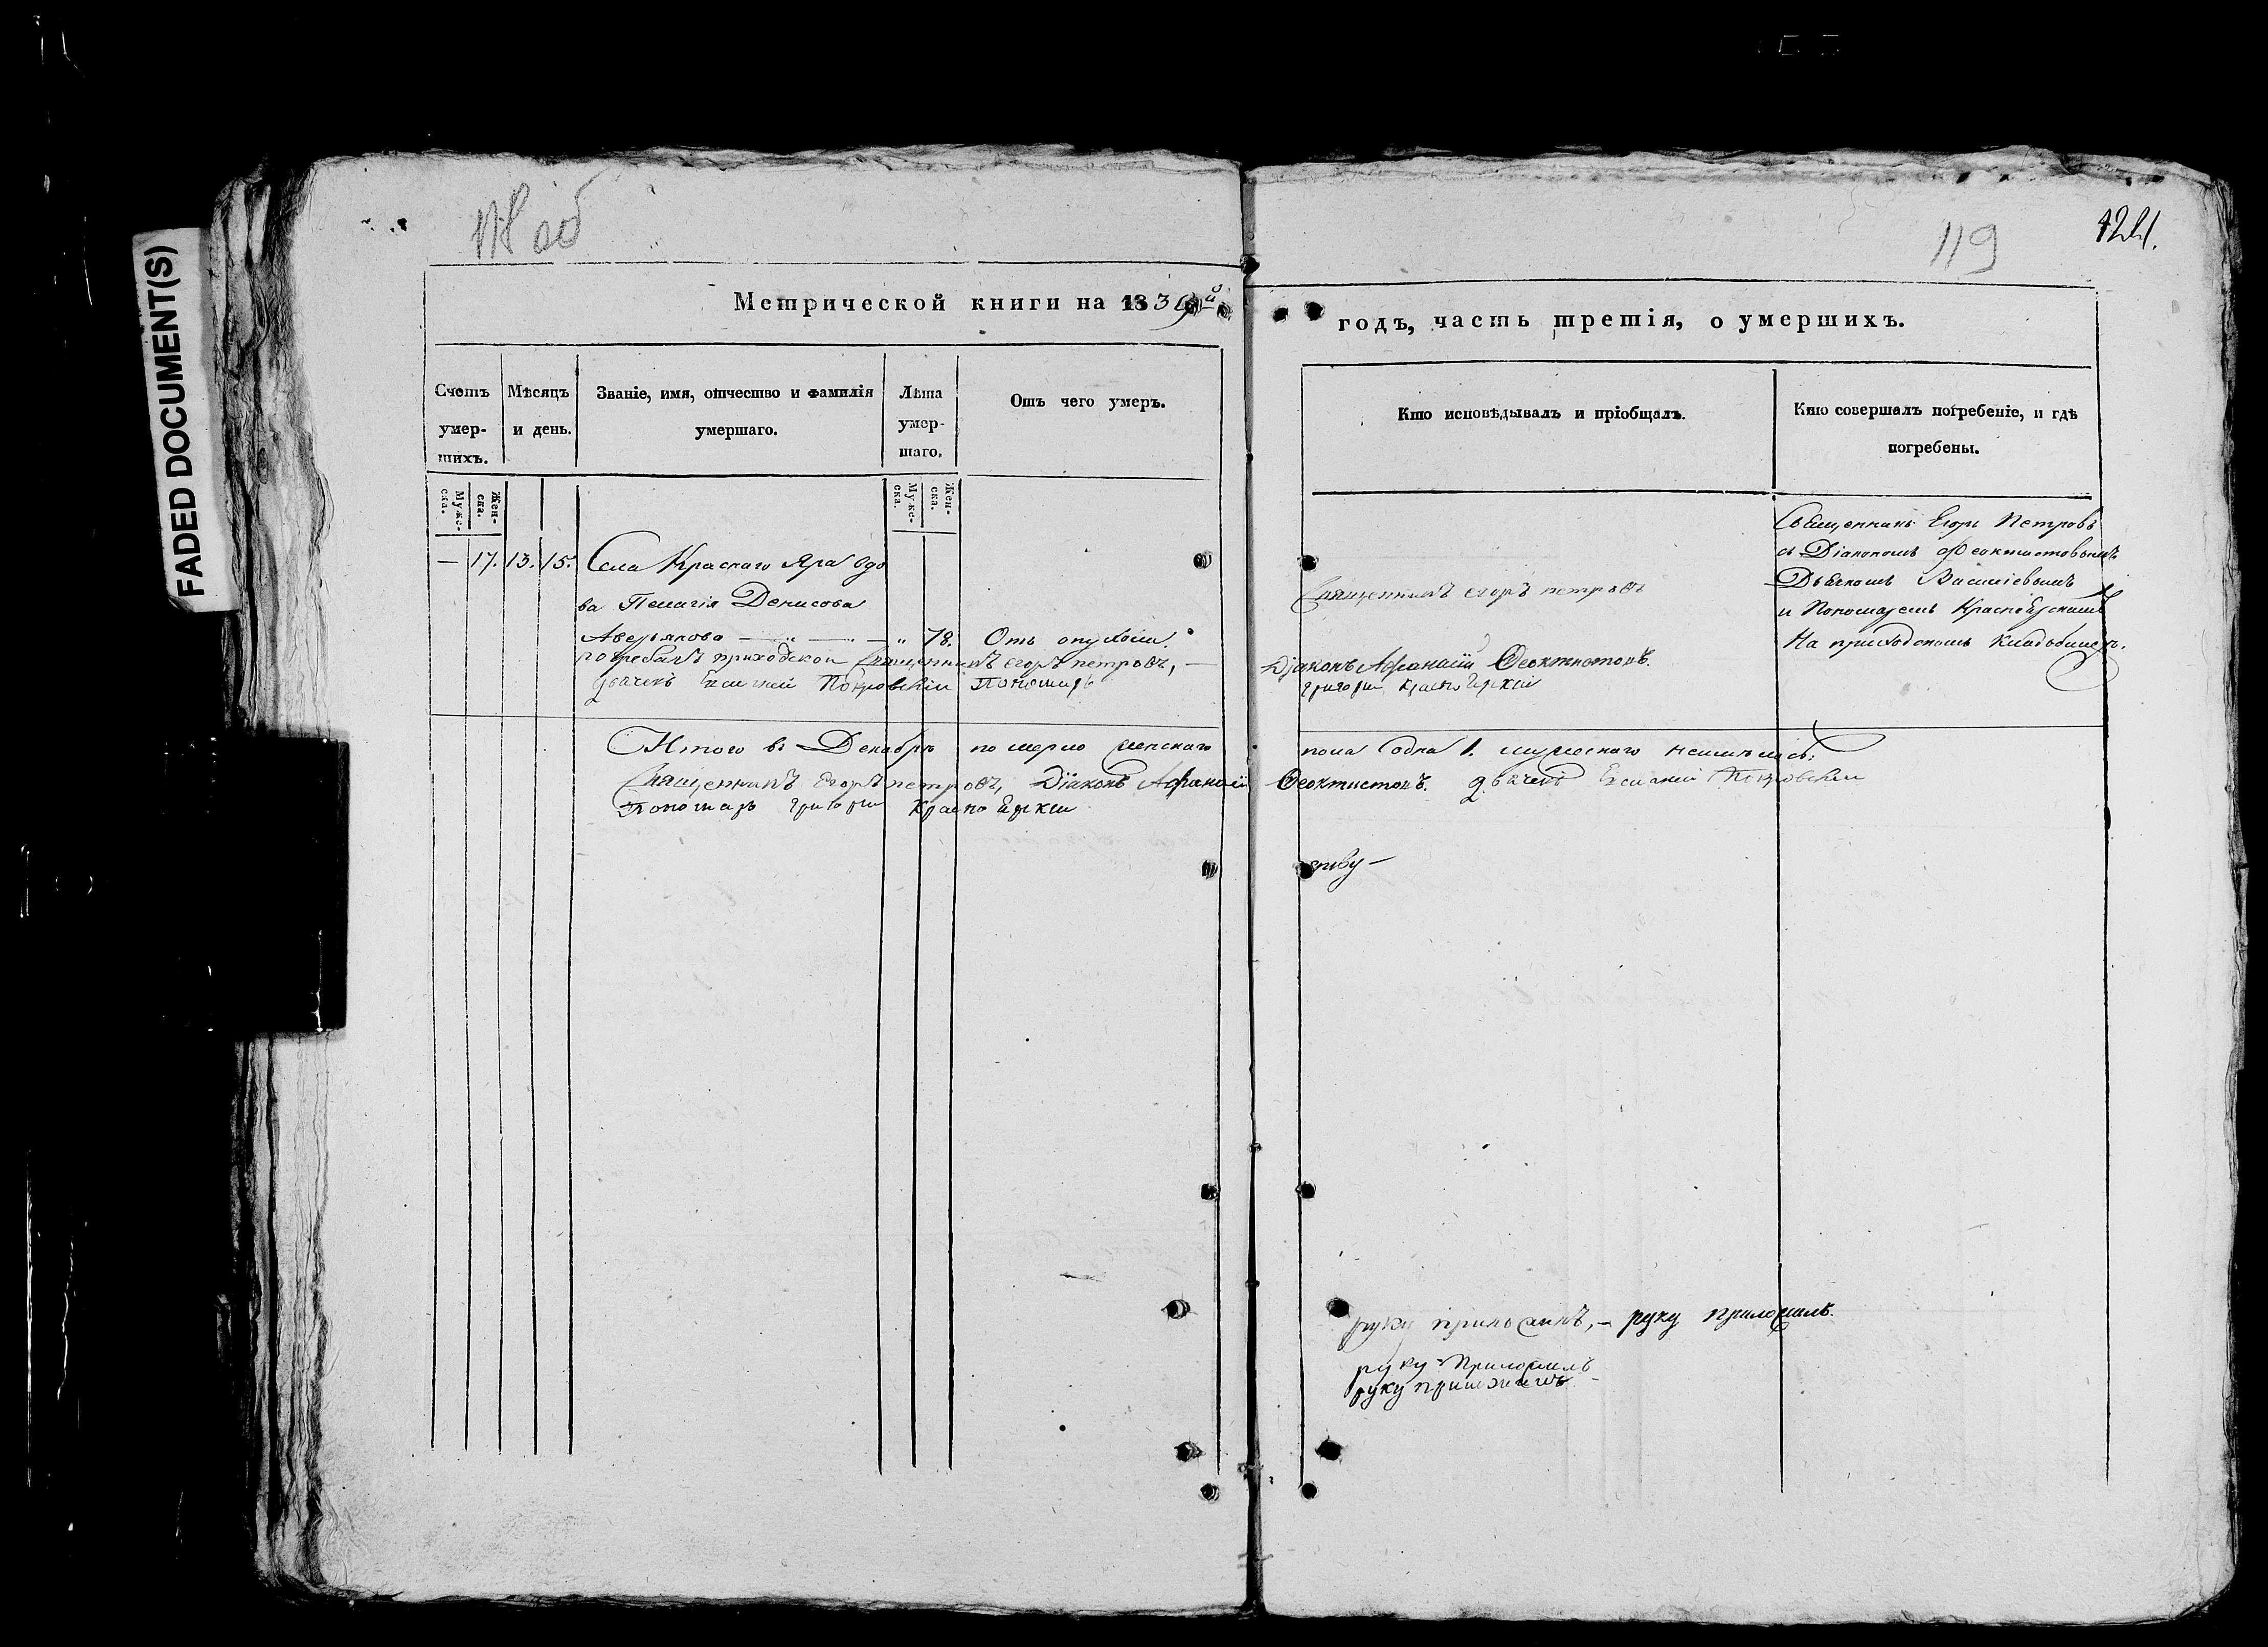 FADED DOCUMENT(S)
об
119
Метрической книги на 1836й годъ, часть третія, о умершихъ.
Счетъ умер- шихъ.
Мѣсяцъ и день.
Званіе, имя, отчество и фамилія умершаго.
Лѣта умер- шаго.
Отъ чего умеръ.
Кто исповѣдывалъ и пріобщалъ.
Кто совершалъ погребеніе, и гдѣ погребены.
Муже- ска.
Жен- ска.
Муже- ска.
Жен- ска.
— 17. 13. 15. Села Краснаго Яра Вдо
ва Пелагія Денисова
Аверьянова — „ — „ — „ 78. Отъ опухоли.
Священникъ Егоръ Петровъ
Священникъ Егоръ Петровъ
съ Діакономъ Феоктистовымъ
Дьячкомъ Василіевымъ
и Пономаремъ Красноярскимъ
На приходскомъ кладбищѣ.
погребалъ приходской Священникъ Егоръ Петровъ, — Діаконъ Афанасій Феоктистовъ.
дьячекъ Покровскій Пономарь Григорій Красноярскій
Итого въ Декабрѣ померло женскаго пола одна 1. мужескаго
Священникъ Егоръ Петровъ, Діаконъ Афанасій Феоктистовъ. дьячекъ Покровскій
Пономарь Григорій Красноярскій
руку приложилъ, — руку приложилъ.
руку приложилъ
руку приложилъ —